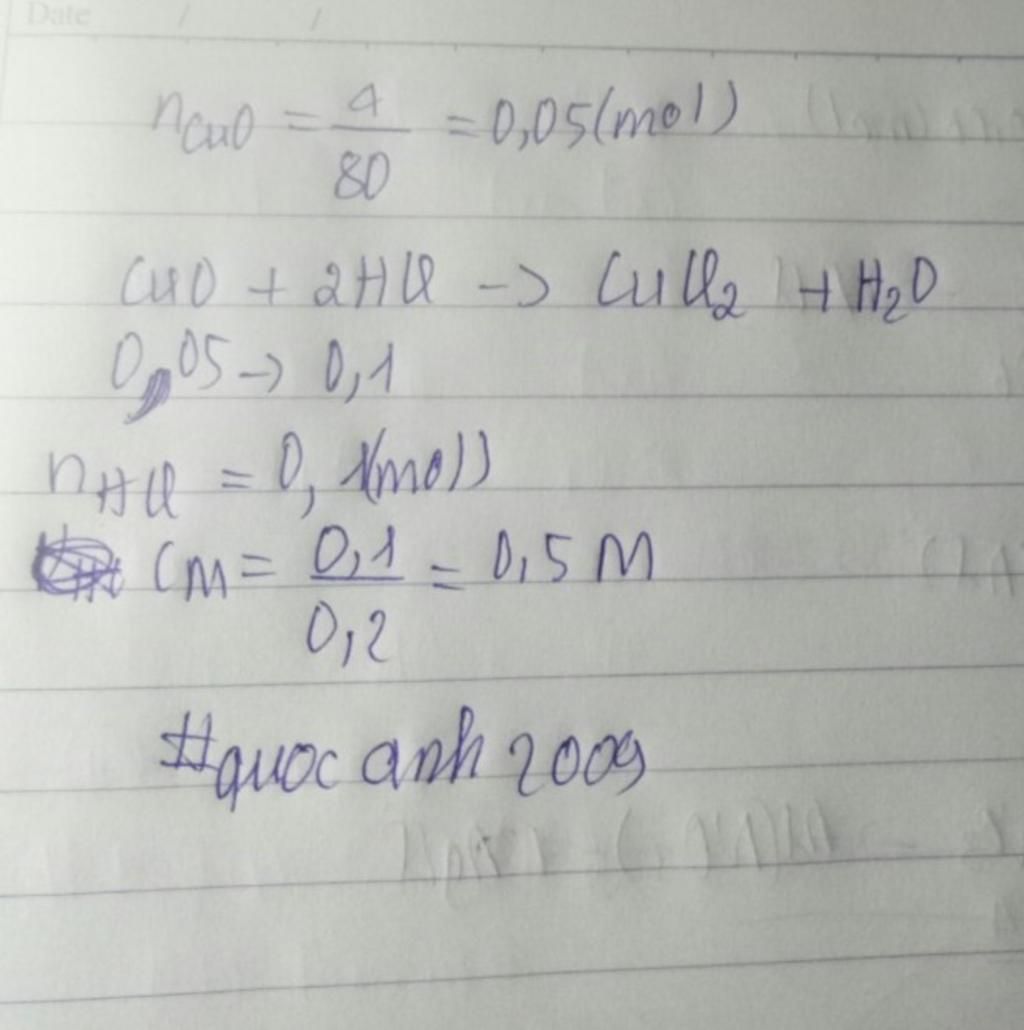 Date / /
nCuO = 4/80 = 0,05(mol)
CuO + 2HCl -> CuCl2 + H2O
0,05 -> 0,1
nHCl = 0,1(mol)
CM = 0,1/0,2 = 0,5 M
#quoc anh 2009